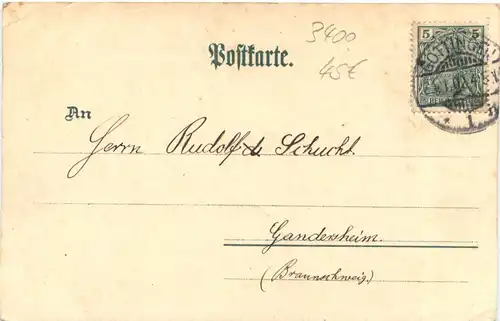 3400
Postkarte.
45€
5 5
GÖTTINGEN
1
An
Herrn Rudolf Schucht.
Gandersheim.
(Braunschweig.)